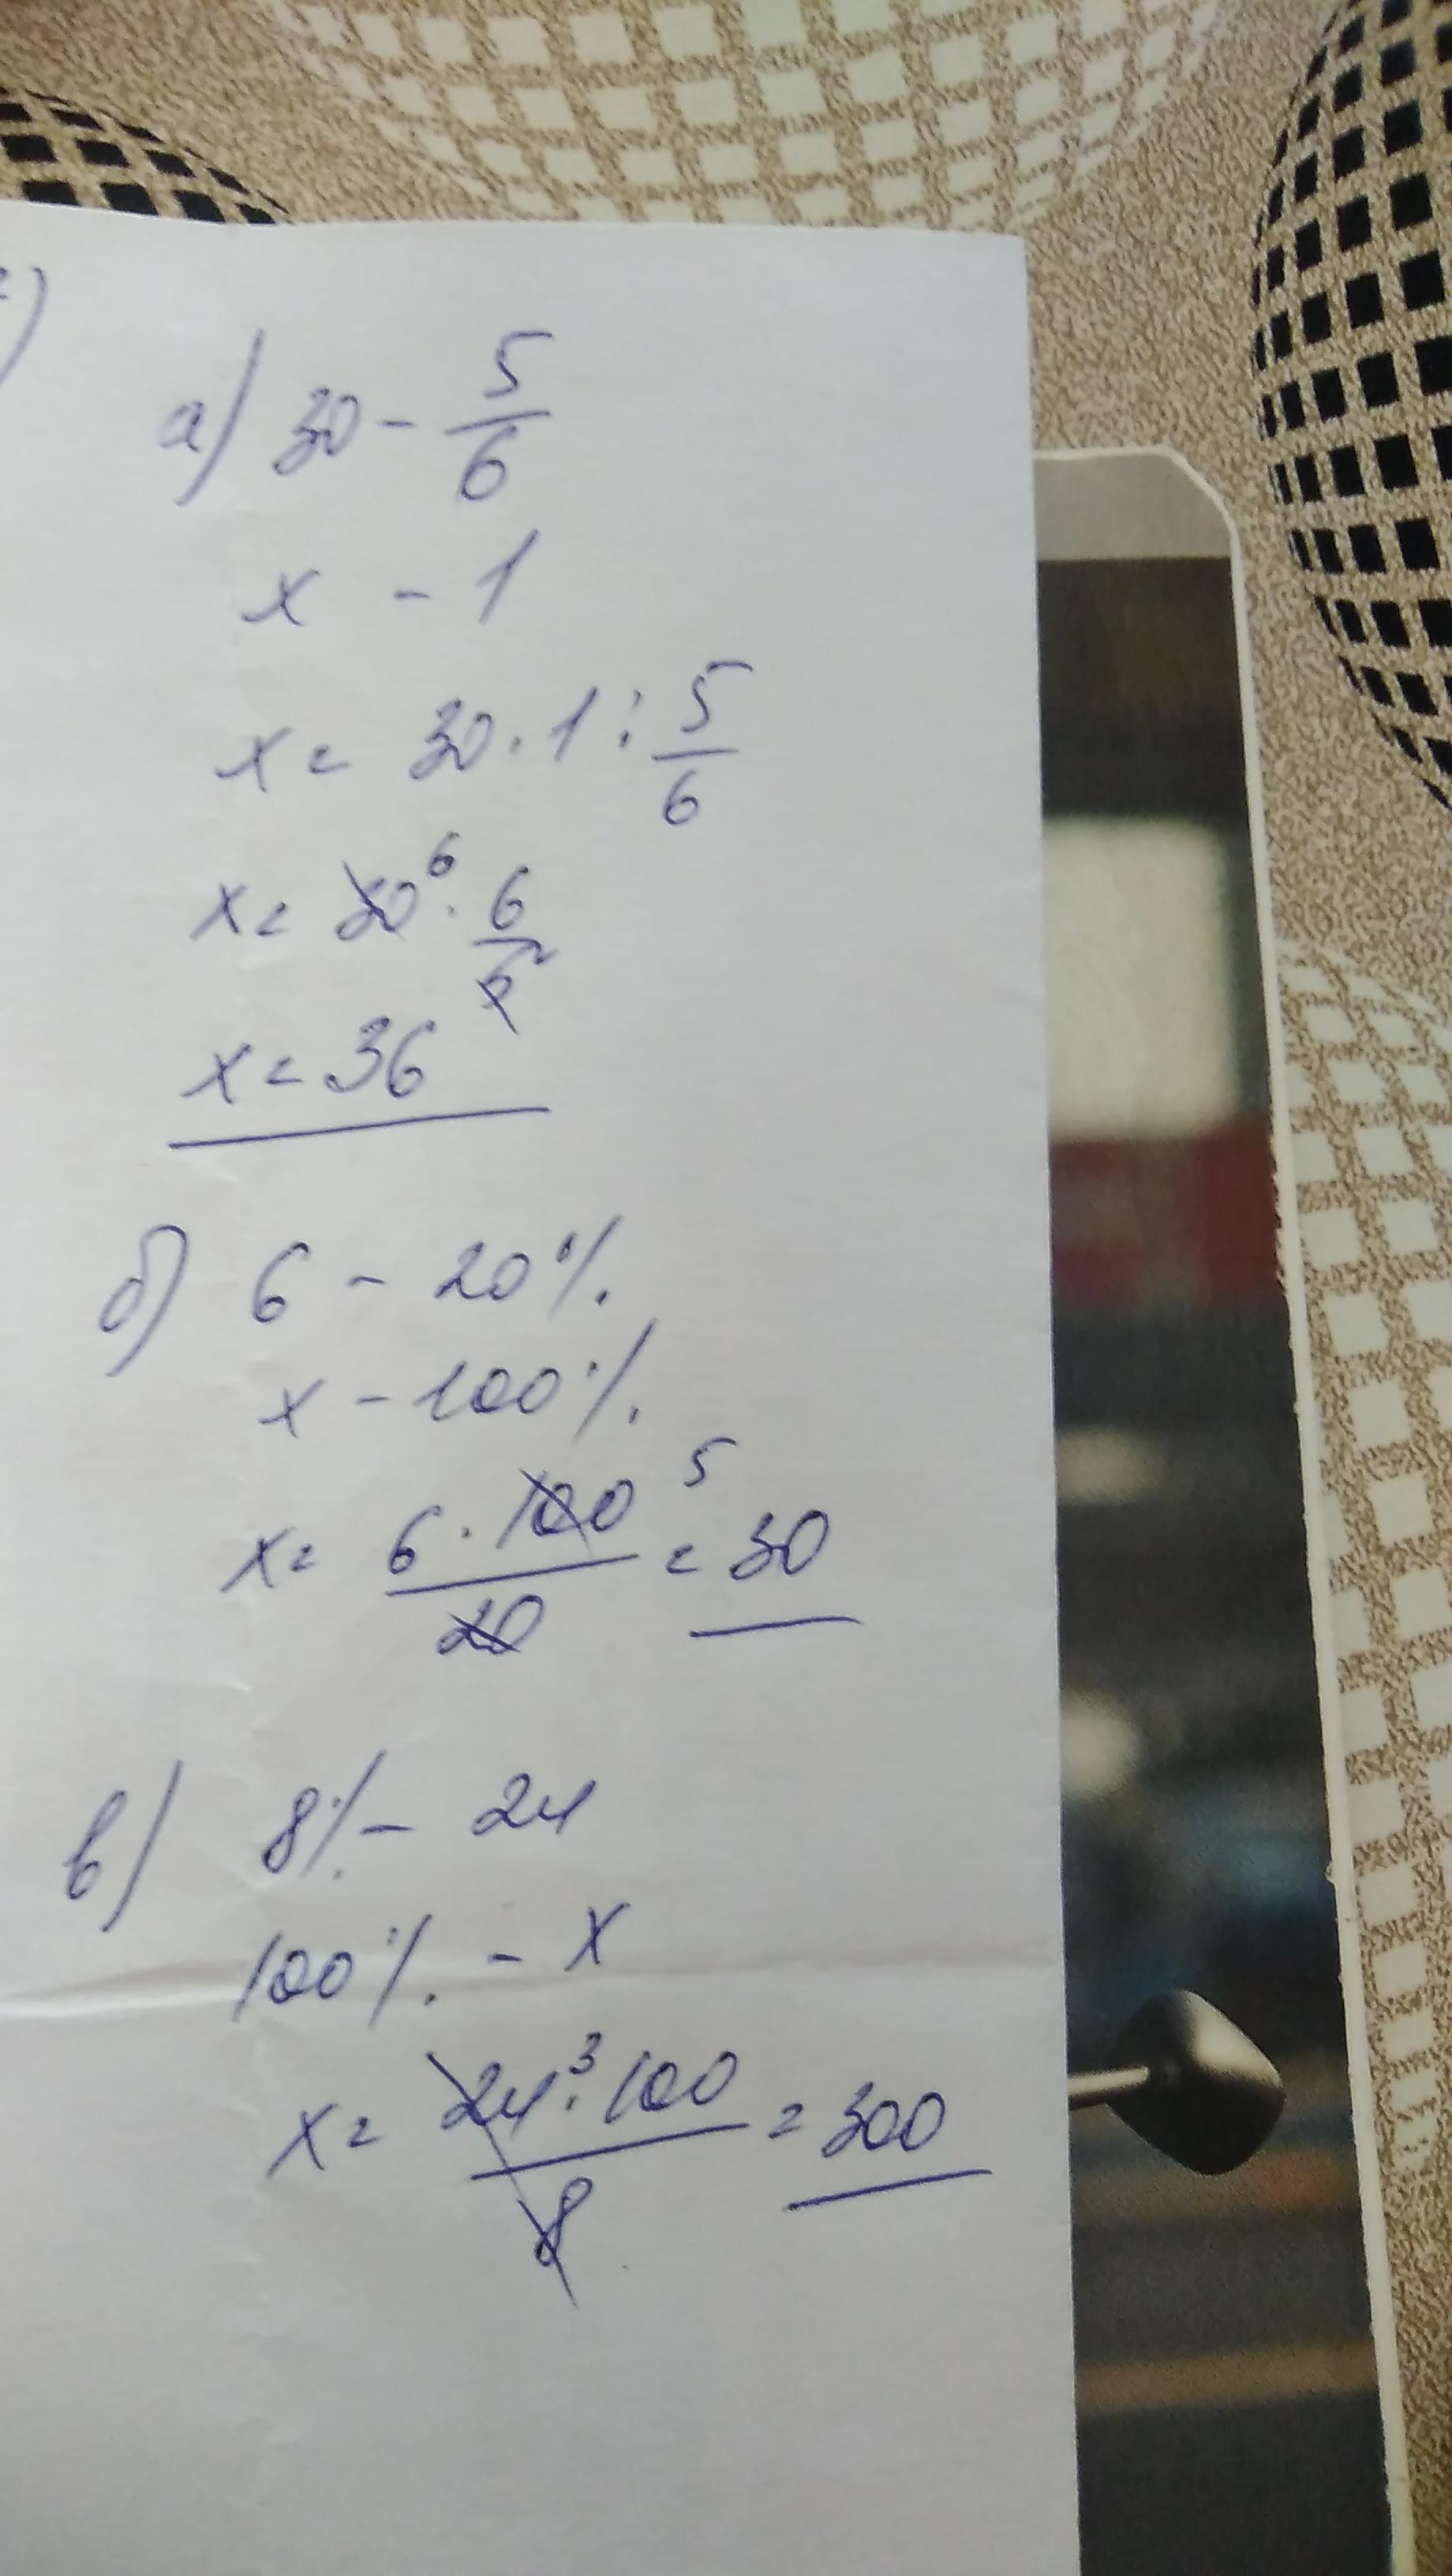 2)
а) 30 - 5/6
x - 1
x = 30 · 1 : 5/6
x = 30⁶ · 6/5
x = 36
б) 6 - 20%
x - 100%
x = 6 · 100 ⁵/20 = 30
в) 8% - 24
100% - x
x = 24³ · 100/8 = 300